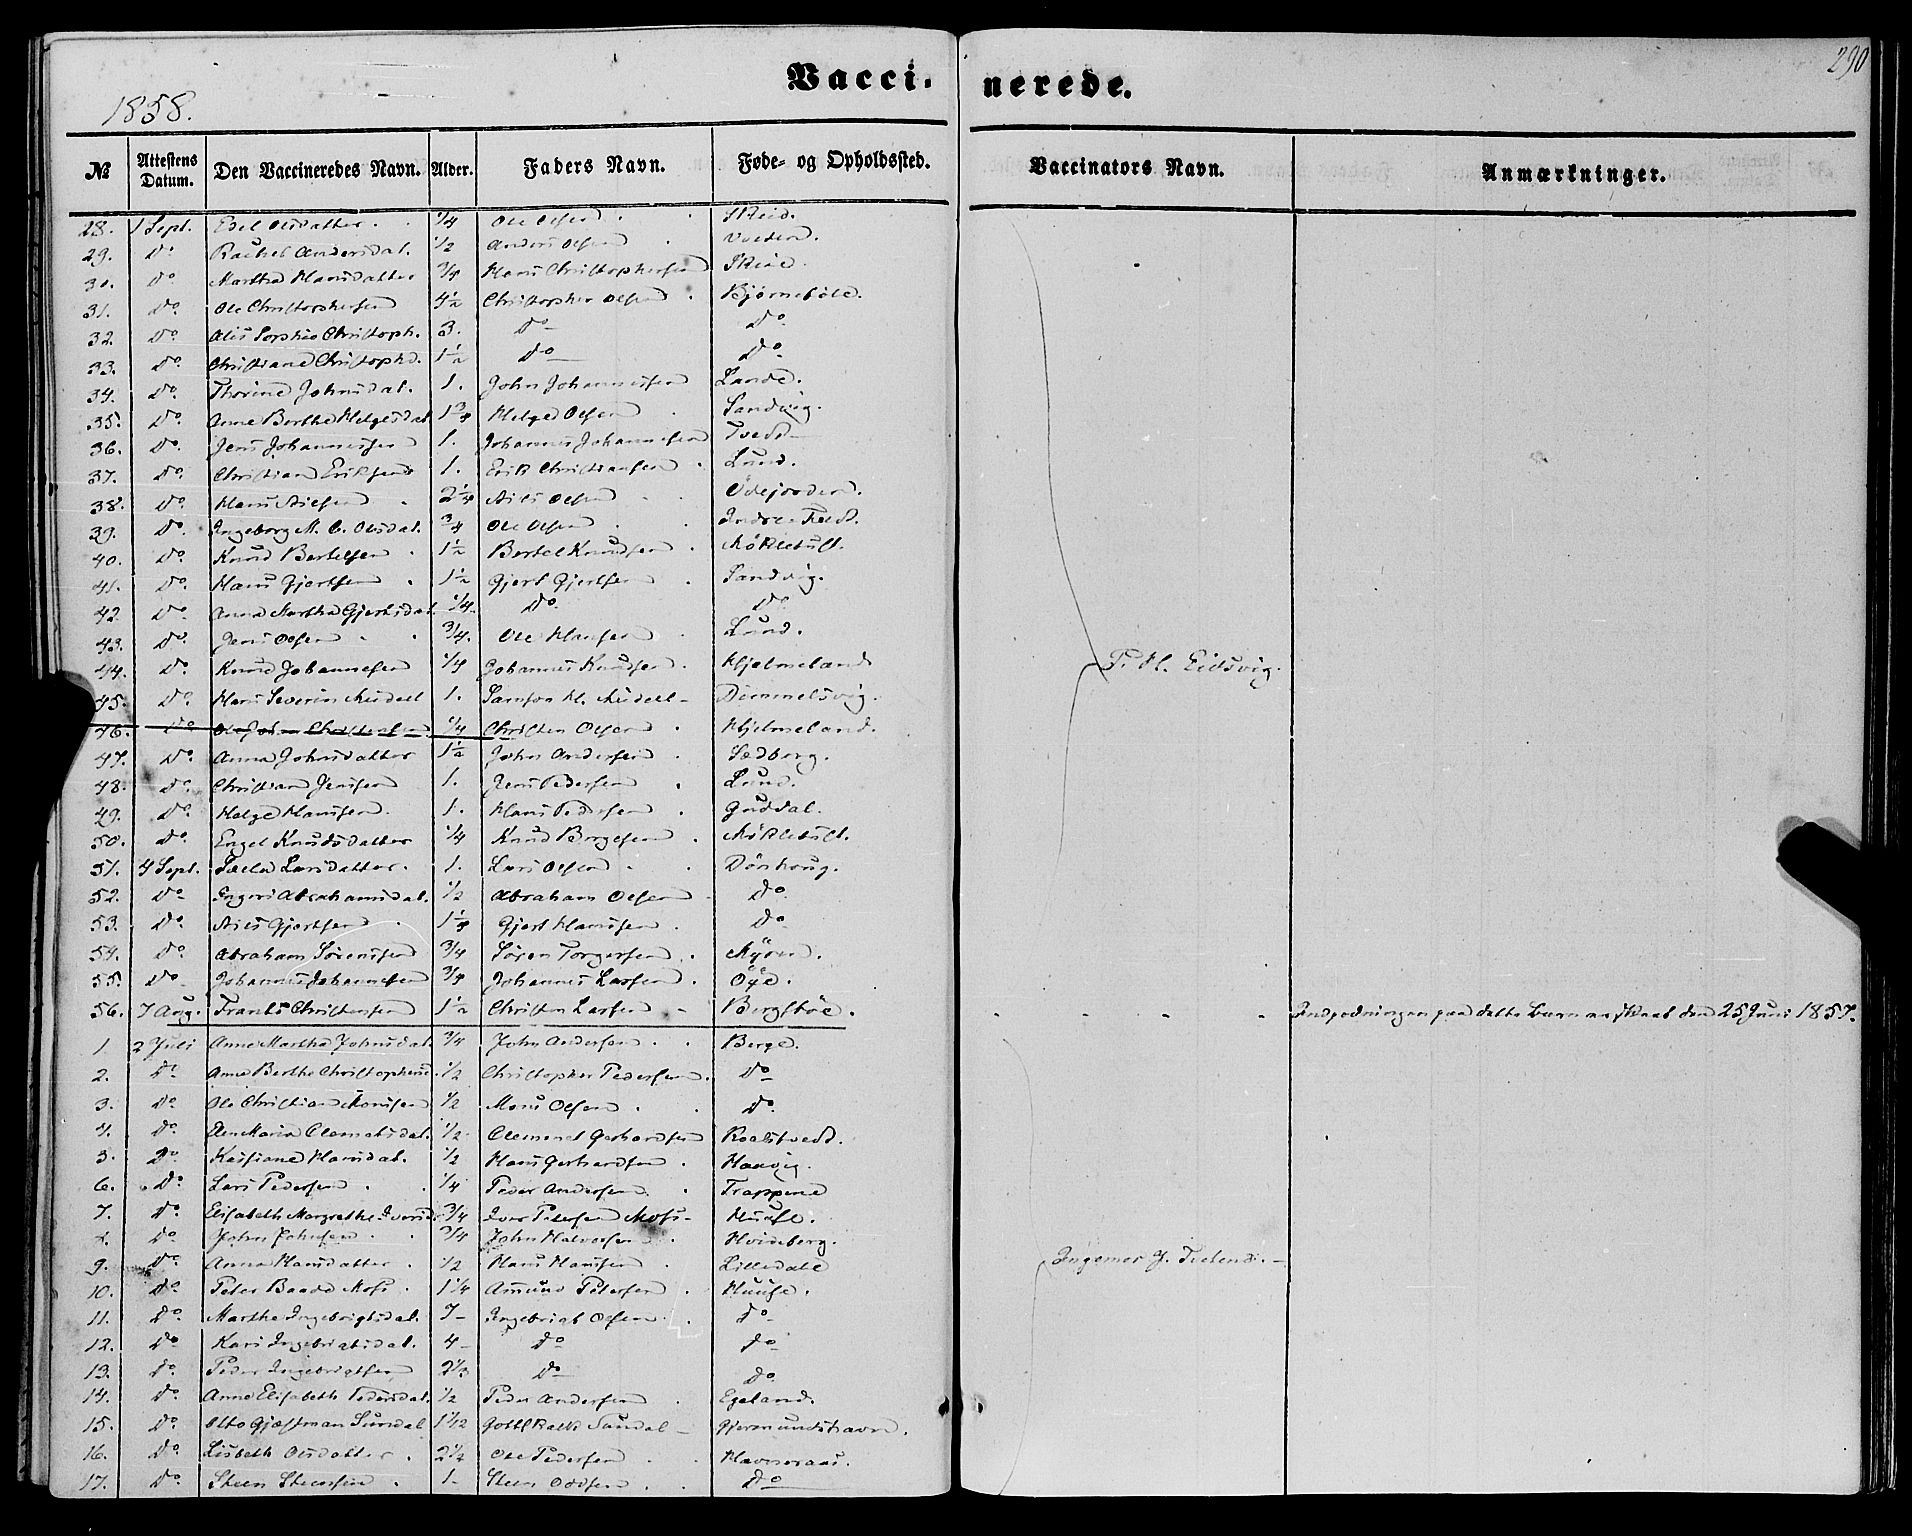 290
Vaccinerede.
1858.
№ Attestens Datum. Den Vaccineredes Navn. Alder. Faders Navn. Føde- og Opholdssted. Vaccinators Navn. Anmærkninger.
28. 1 Sept. Edel Olsdatter. 1/4 Ole Olsen. Skeid.
29. Do Rachel Andersdat. 1/2 Anders Olsen
30. Do Martha Hansdatter 3/4 Hans Christophersen
31. Do Ole Christophersen 4 1/2 Christopher Olsen. Bjørnebøle.
32. Do Christoph. 3. Do Do
33. Do Christiane Christophd. 1 1/2 Do Do
34. Do Thorine Johnsdat. 1. John Johannessen Lande.
35. Do Anne Berthe Helgesdat. 1 3/4 Helge Olsen Sandvig.
36. Do Jens Johannessen 1. Johannes Johannesen Tvedt
37. Do Christian Eriksen 1. Erik Christiansen. Lund.
38. Do Hans Nielsen 2 1/4 Niels Olsen
39. Do Ingeborg M. C. Olsdat. 3/4 Ole Olsen Indre
40. Do Knud Bertelsen 1 1/2 Bertel Knudsen. Mökletust.
41. Do Hans Gjertsen. 1 1/2 Gjert Gjertsen. Sandvig.
42. Do Anna Martha Gjertsdat. 1/4. Do Do
43. Do Jens Olsen 3/4. Ole Hansen Lund.
44. Do Knud Johannesen 1/4 Johannes Knudsen. Hjelmeland
45. Do Hans Severin 1. Samson H. Dimmelsvig.
46. Do Ole Johan Christensen 1/4 Christen Olsen Hjelmeland.
47. Do Anna Johnsdatter 1 1/2 John Andersen Sædberg.
48. Do Christian Jensen 1. Jens Pedersen. Lund.
49. Do Helge Hansen. 1. Hans Pedersen. Guddal.
50. Do Engel Knudsdatter 1/4 Knud Borgesen. Mökletust.
51. 4 Sept. Larsdatter. 1. Lars Olsen Döshoug.
52. Do Ingeri Abrahamsdat. 1/2 Abraham Olsen Do
53. Do Niels Gjertsen. 1 1/4 Gjert Hansen. Do
54. Do Abraham Sörensen 3/4 Sören Torgersen. Myren.
55. Do Johannes Johannesen 3/4 Johannes Larsen. Öye.
56. 7 Aug. Frants Christensen 1 1/2 Christen Larsen Bergstöe. Indpodningen paa dette Barn er skeet den 25 Juni 1857.
T. H. Eidsvig.
1. 2 Juli Anne Martha Johnsdat. 3/4 John Andersen. Berge.
2. Do Anne Berthe Christophersd. 1/2 Christopher Pedersen. Do
3. Do Ole Christian Monsen 1/2 Mons Olsen. Do
4. Do Elen Maria Clemetsdat. 1/2 Clemmet Gerhardsen
5. Do Hansdat. 1/2 Hans Gerhardsen. Haavig.
6. Do Lars Pedersen. 1/4 Peder Andersen. Trappene
7. Do Elisabeth Margrethe Iversd. 3/4 Iver Petersen Moss Huuse.
8. Do John Johnsen. 3/4 John Halvorsen. Hvideberg.
9. Do Anna Hansdatter. 1/2 Hans Hansen. Lilledale
10. Do Peter Baade Moss. 1 1/4 Amund Petersen. Huuse.
11. Do Marthe Ingebrigtsdat. 7 Ingebrigt Olsen. Do
12. Do Kari Ingebrigtsdat. 4 Do Do
13. Do Peder Ingebrigtsen 2 1/2 Do Do
14. Do Anne Elisabeth Pedersdat. 1/2 Peder Andersen. Egeland.
15. Do Otto Gjæstman Sundal 1 1/12 Sundal Gjermundshavn.
16. Do Lisbeth Olsdatter. 2 1/2 Ole Pedersen.
17. Do Steen Steensen. 1 Steen Oddsen. Do
Ingemer J.